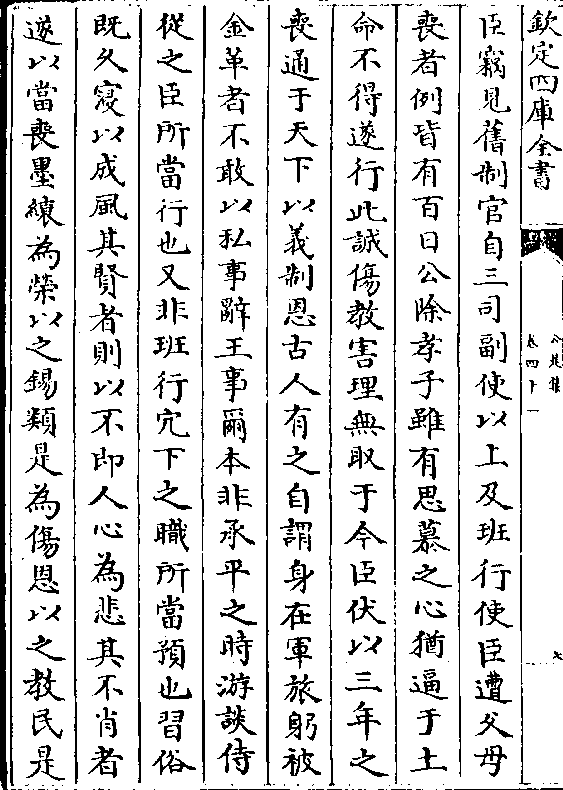 欽定四庫全書
公是集
卷四十一
七
臣竊見舊制官自三司副使以上及班行使臣遭父母
喪者例皆有百日公除孝子雖有思慕之心猶逼于土
命不得遂行此誠傷教害理無取于今臣伏以三年之
喪通于天下以義制恩古人有之自謂身在軍旅躬被
金革者不敢以私事辭王事爾本非承平之時游談侍
從之臣所當行也又非班行冗下之職所當預也習俗
既久寖以成風其賢者則以不即人心為悲其不肖者
遂以當喪墨縗為榮以之錫類是為傷恩以之教民是